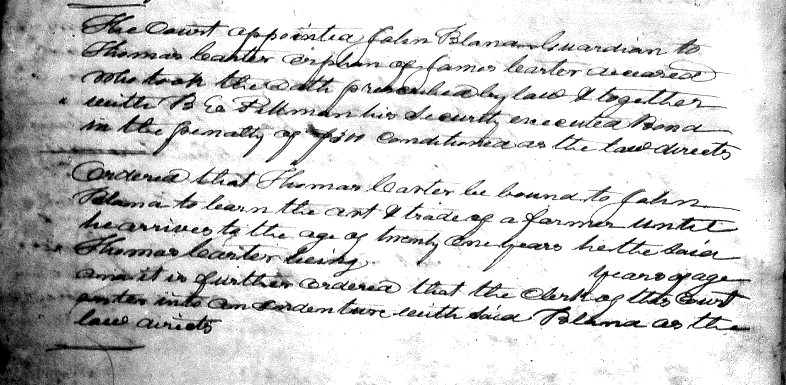 The Court appointed John Bland Guardian to
Thomas Carter orphan of James Carter deceased
who took the oath prescribed by law & together
with B E Pittman his security executed Bond
in the penalty of conditioned as the law directs
Ordered that Thomas Carter be bound to John
Bland to learn the art & trade of a farmer until
he arrives to the age of twenty one years he the said
Thomas Carter being years of age
and it is further ordered that the Clerk of this Court
enter into an indenture with said Bland as the
law directs